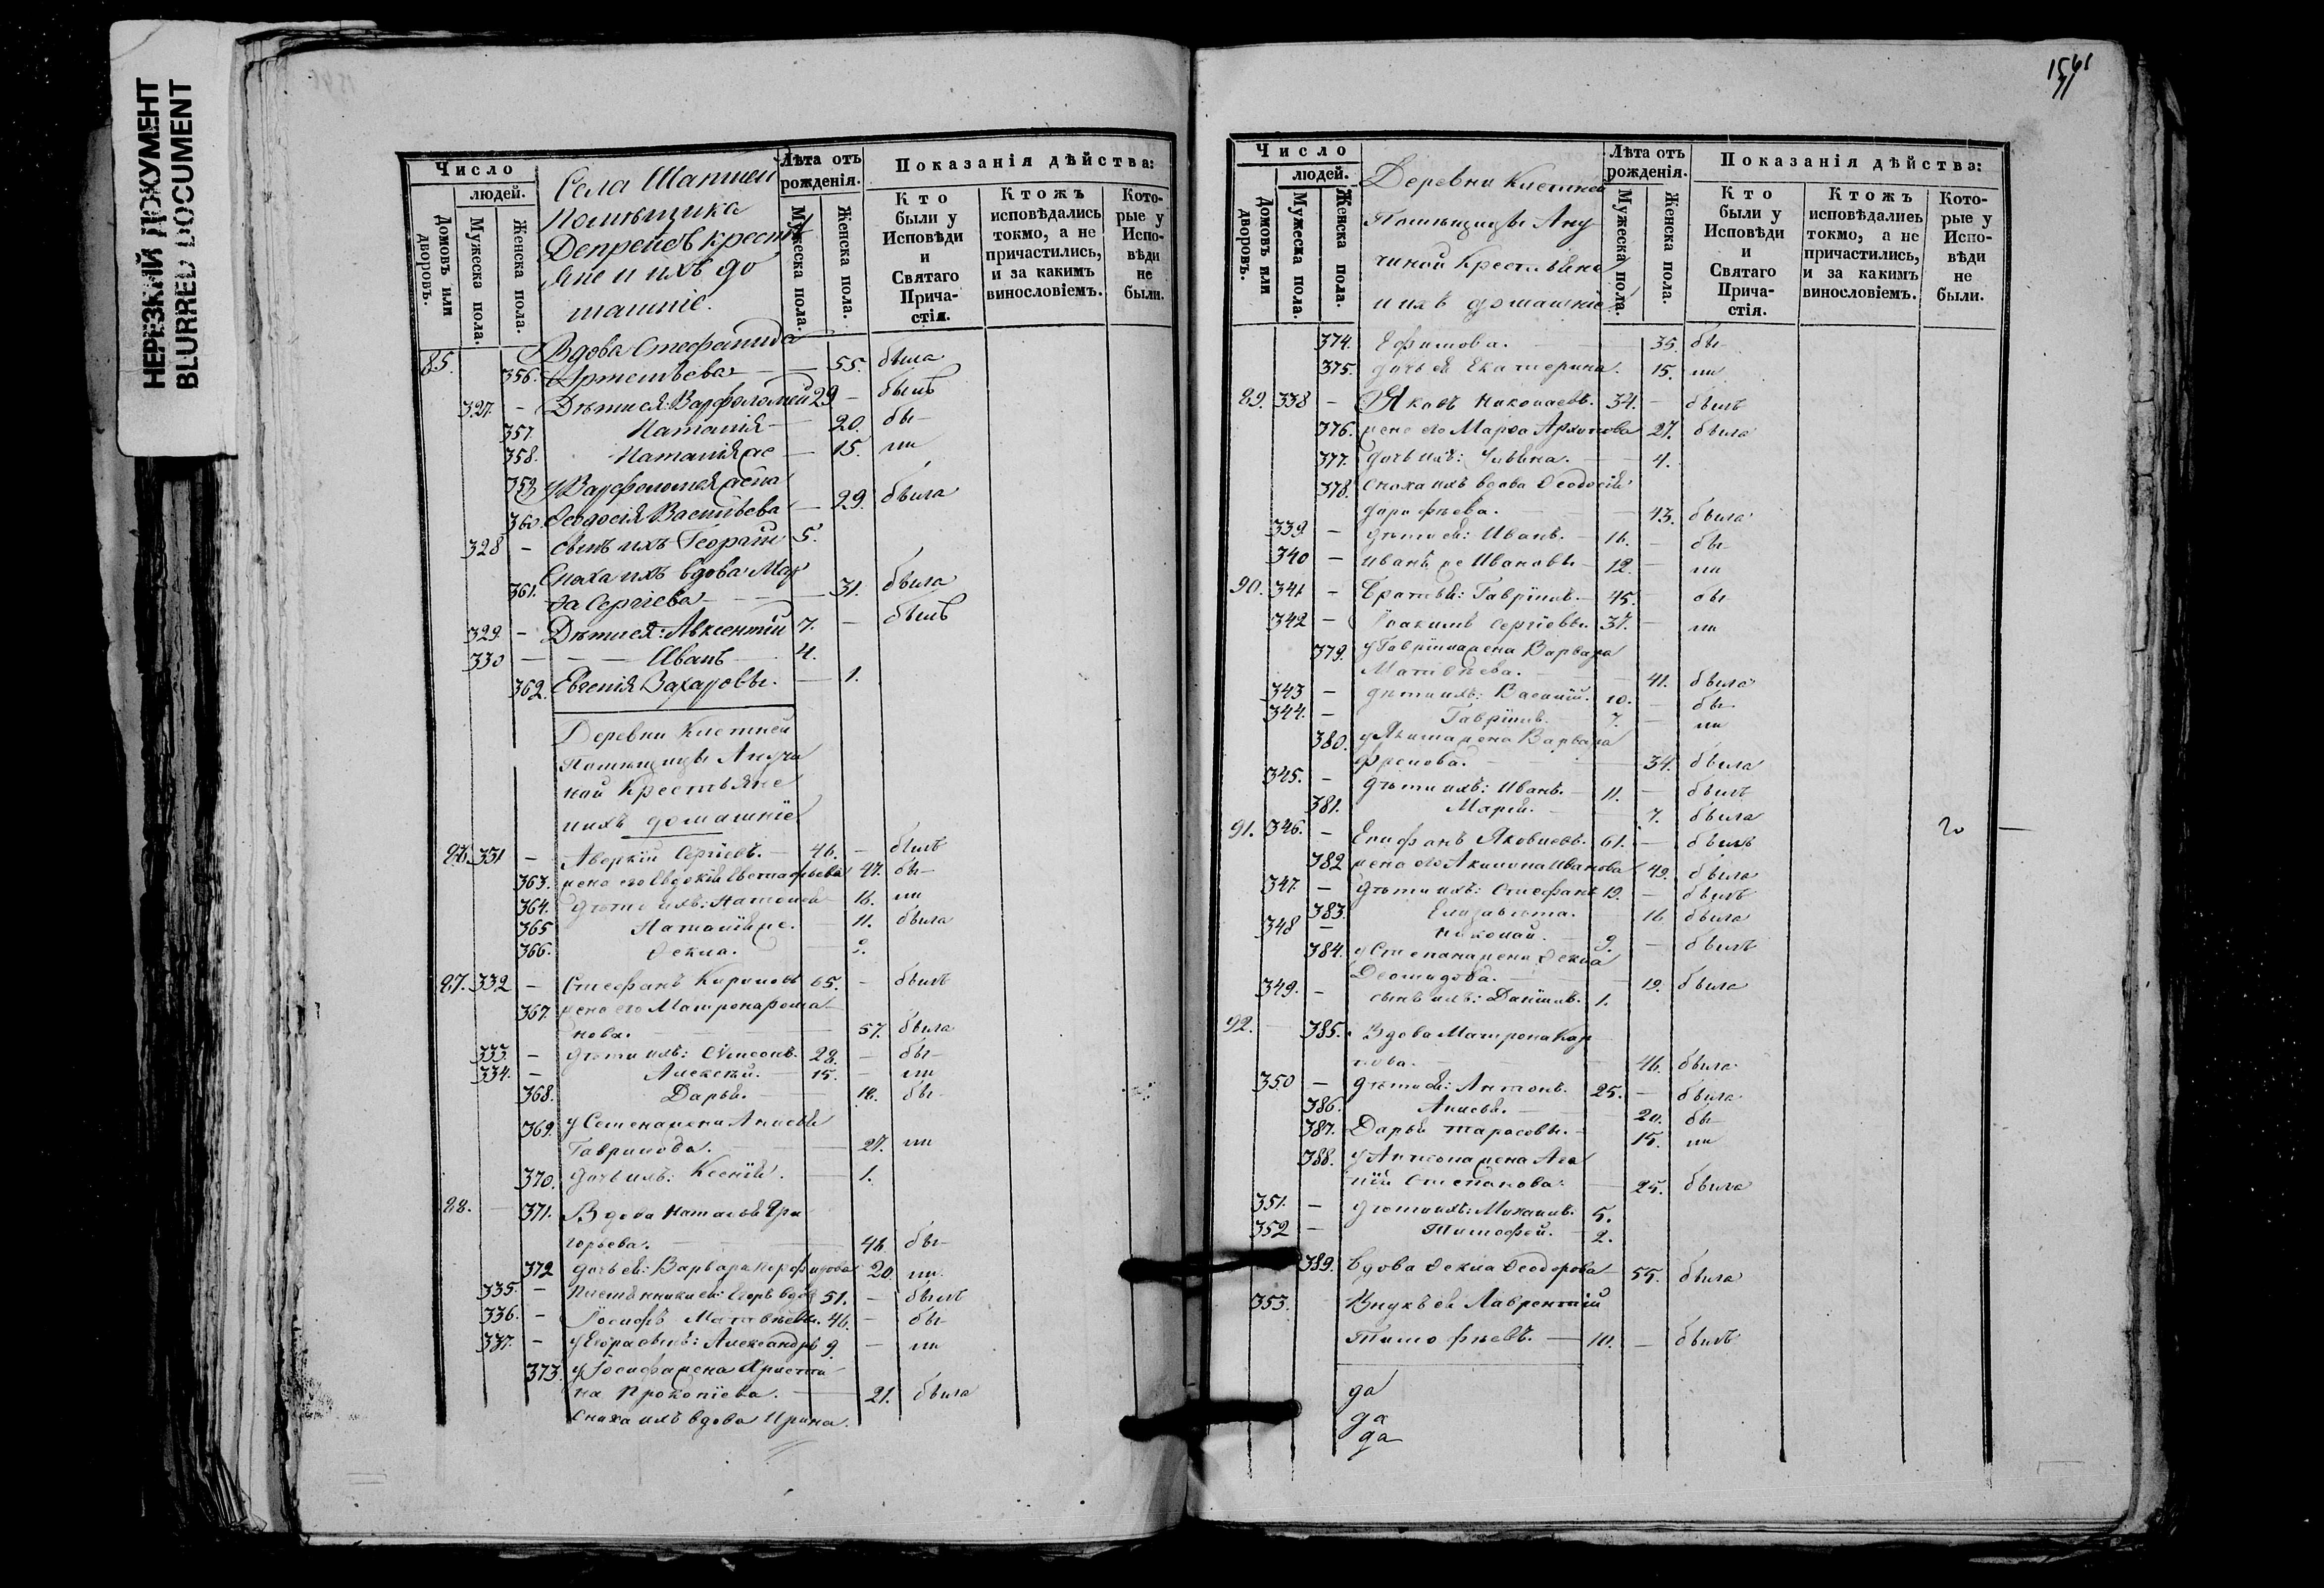 НЕРЕЗКИЙ ДОКУМЕНТ
BLURRED DOCUMENT
Число
людей.
Домовъ или дворовъ.
Мужеска пола.
Женска пола.
Села Шапшей
Помѣщика
Депрейсъ крестья
яне и ихъ до
машніе.
Лѣта отъ рожденія.
Мужеска пола.
Женска пола.
Показанія дѣйства:
Кто были у Исповѣди и Святаго Прича-стія.
Ктожъ исповѣдались токмо, а не причастились, и за какимъ винословіемъ.
Кото-рые у Испо-вѣди не были.
85. Вдова Стефанида
356. Артемьева 55. была
327. – Дѣти ея: Варфоломей 29 – былъ
357. Наталія 20. бы-
358. Наталія же 15. ли
359 у Варфоломея жена
360. Ѳеодосія Васильева 29. была
328 – сынъ ихъ Георгій 5.
Сноха ихъ вдова Мар
361. ѳа Сергіева 31. была
329. – Дѣти ея: Авксентій 7. – былъ
330 – Иванъ 4.
362. Евгенія Захаровы. 1.
Деревни Кистней
Помѣщицы Анучи
ной Крестьяне
и ихъ домашніе
86. 331 – Аверкій Сергѣевъ. 46. – былъ
363. жена его Евдокія Евстафьева 47. бы-
364. дѣти ихъ: Наталья 16. ли
365 Наталія же. 11. была
366. Ѳекла. 2.
87. 332 – Стефанъ Кириловъ 65. – былъ
367. жена его Матрона
нова. 57. была
333. – дѣти ихъ: Симеонъ. 28. – бы-
334. – Алексѣй. 15. – ли
368. Дарья. 18. бы-
369. у Семена жена Анисья
Гаврилова. 27. ли
370. дочь ихъ: Ксенія. 1.
88. – 371. Вдова Наталья Гри
горьева. 48. бы-
372 дочь ея: Варвара 20. ли
335. – Племянники ея: Егоръ вдов 51. – былъ
336. – Іосифъ Матвѣевы. 46. – бы-
337. – у Егора сынъ: Александръ 9. – ли
373. у Іосифа жена Христи
на Прокопіева. 21. была
Сноха ихъ вдова Ирина.
Число
людей.
Домовъ или дворовъ.
Мужеска пола.
Женска пола.
Деревни Кистней
Помѣщицы Ану
чиной Крестьяне
и ихъ домашніе
Лѣта отъ рожденія.
Мужеска пола.
Женска пола.
Показанія дѣйства:
Кто были у Исповѣди и Святаго Прича-стія.
Ктожъ исповѣдались токмо, а не причастились, и за какимъ винословіемъ.
Кото-рые у Испо-вѣди не были.
374. Ефимова. 35. бы-
375. дочь ея Екатерина. 15. ли
89. 338 – Яковъ Николаевъ. 34. – былъ
376. жена его Марѳа 27. была
377. дочь ихъ: Ульяна. 4.
378. Сноха ихъ вдова Ѳеодосія
Дорофѣева. 43. была
339. – дѣти ея: Иванъ. 16. – бы-
340 – Иванъ же Ивановы 12. – ли
90. 341 – Братья: Гаврiилъ. 45. – бы-
342 – Іоакимъ Сергіевы. 37. – ли
379. у Гавріила жена Варвара
Матвѣева. 41. была
343 – дѣти ихъ: Василій. 10. – бы-
344. – Гавріилъ. 7. – ли
380. у Якима жена Варвара
Фролова. 34. была
345. – дѣти ихъ: Иванъ. 11. – былъ
381. Марья. 7. была
91. 346. – Епифанъ Яковлевъ. 61. – былъ
20 –
382 жена его Акилина Иванова 49. была
347. – дѣти ихъ: Стефанъ 19. – былъ
383. Елизавета. 16 была
348 – Николай. 9. – былъ
384. у Степана жена Ѳекла
Деомидова. 19. была
349. – сынъ ихъ: Даніилъ. 1.
92. 385. Вдова Матрона Кар
пова. 46. была
350 – дѣти ея: Антонъ. 25. – была
386. Анисья. 20. бы-
387. Дарья Тарасовы. 15. ли
388. у Антона жена Ага
ѳія Степанова. 25. была
351. – дѣти ихъ: Михаилъ. 5.
352 – Тимофей. 2.
389. Вдова Ѳекла Ѳеодорова 55. была
353. Внукъ ея Лаврентій
Тимофѣевъ. 10. – былъ
да
да
да